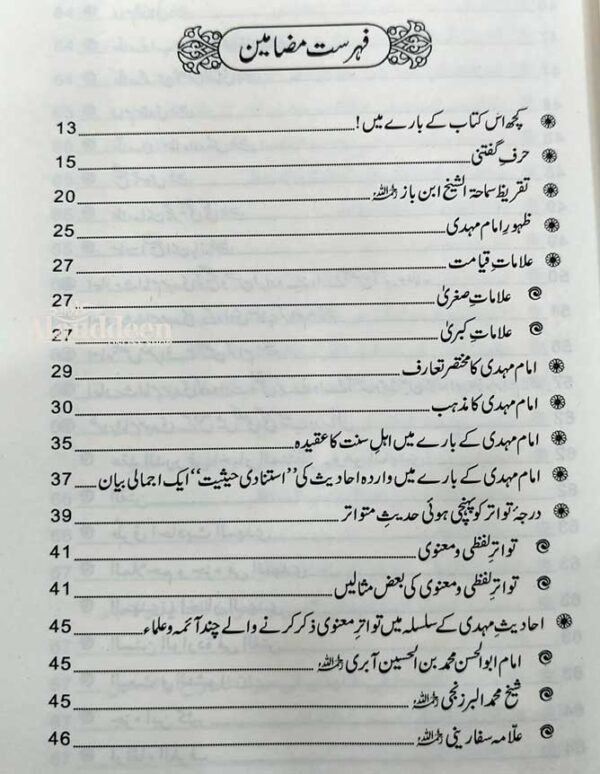 فہرست مضامین
کچھ اس کتاب کے بارے میں! 13
حرفِ گفتنی 15
تقریظ سماحۃ الشیخ ابن باز رحمہ اللہ 20
ظہورِ امام مہدی 25
علاماتِ قیامت 27
علاماتِ صغریٰ 27
علاماتِ کبریٰ 27
امام مہدی کا مختصر تعارف 29
امام مہدی کا مذہب 30
امام مہدی کے بارے میں اہلِ سنت کا عقیدہ 35
امام مہدی کے بارے میں واردہ احادیث کی ”استنادی حیثیت“ ایک اجمالی بیان 37
درجۂ تواتر کو پہنچی ہوئی حدیثِ متواتر 39
تواترِ لفظی و معنوی 41
تواترِ لفظی و معنوی کی بعض مثالیں 41
احادیثِ مہدی کے سلسلہ میں تواترِ معنوی ذکر کرنے والے چند آئمہ و علماء 45
امام ابوالحسن محمد بن الحسین آبری رحمہ اللہ 45
شیخ محمد البرزنجی رحمہ اللہ 45
علّامہ سفارینی رحمہ اللہ 46